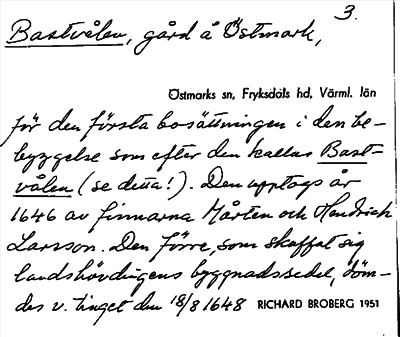 3.
Bastvålen, gård å Östmark,
Östmarks sn, Fryksdals hd, Värml. län
för den första bosättningen i den be-
byggelse som efter den kallas Bast-
vålen (se detta!). Den upptogs år
1646 av finnarna Mårten och Hendrich
Larsson. Den förre, som skaffat sig
landshövdingens byggnadssedel, döm-
des v. tinget den 18/8 1648 RICHARD BROBERG 1951